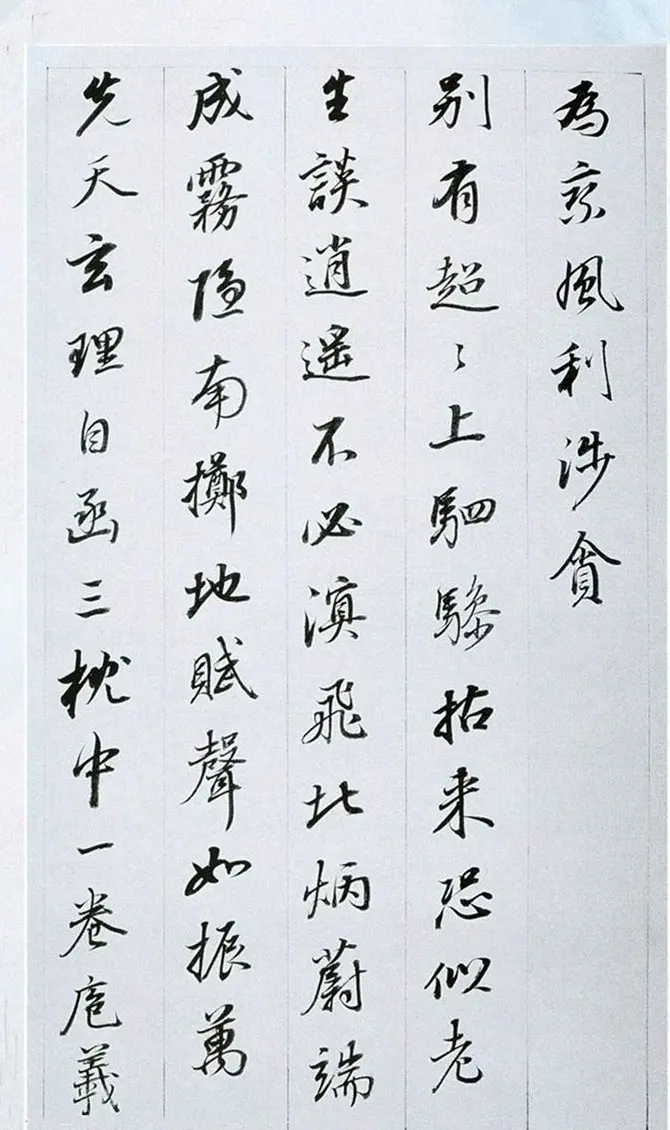 為京風利涉貪
別有超〻上駟驂拈来恐似老
生談逍遙不必溟飛北炳蔚端
成霧隱南擲地賦聲如振萬
先天玄理自函三枕中一卷庖羲